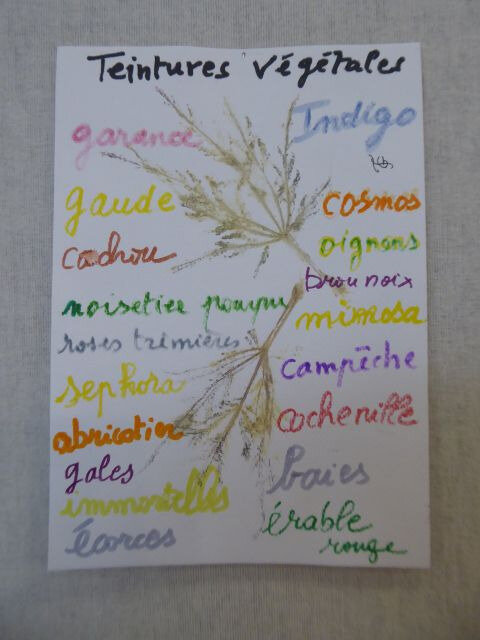 Teintures végétales
garance
gaude
cachou
noisetier pourpre
roses trémières
sephora
abricotier
gales
immortelles
écorces
Indigo
cosmos
oignons
brou noix
mimosa
campêche
cochenille
baies
érable
rouge